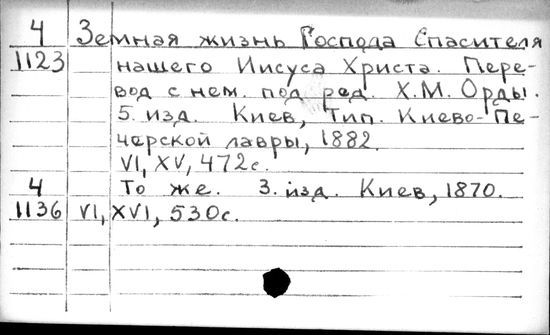 4 Земная жизнь Господа Спасителя
1123 нашего Иисуса Христа. Пере-
вод с нем. под ред. Х.М. Орды.
5. изд. Киев, Тип. Киево-Пе-
черской лавры, 1882.
VI, XV, 472с.
4 То же. 3. изд. Киев, 1870.
1136 VI, XVI, 530с.